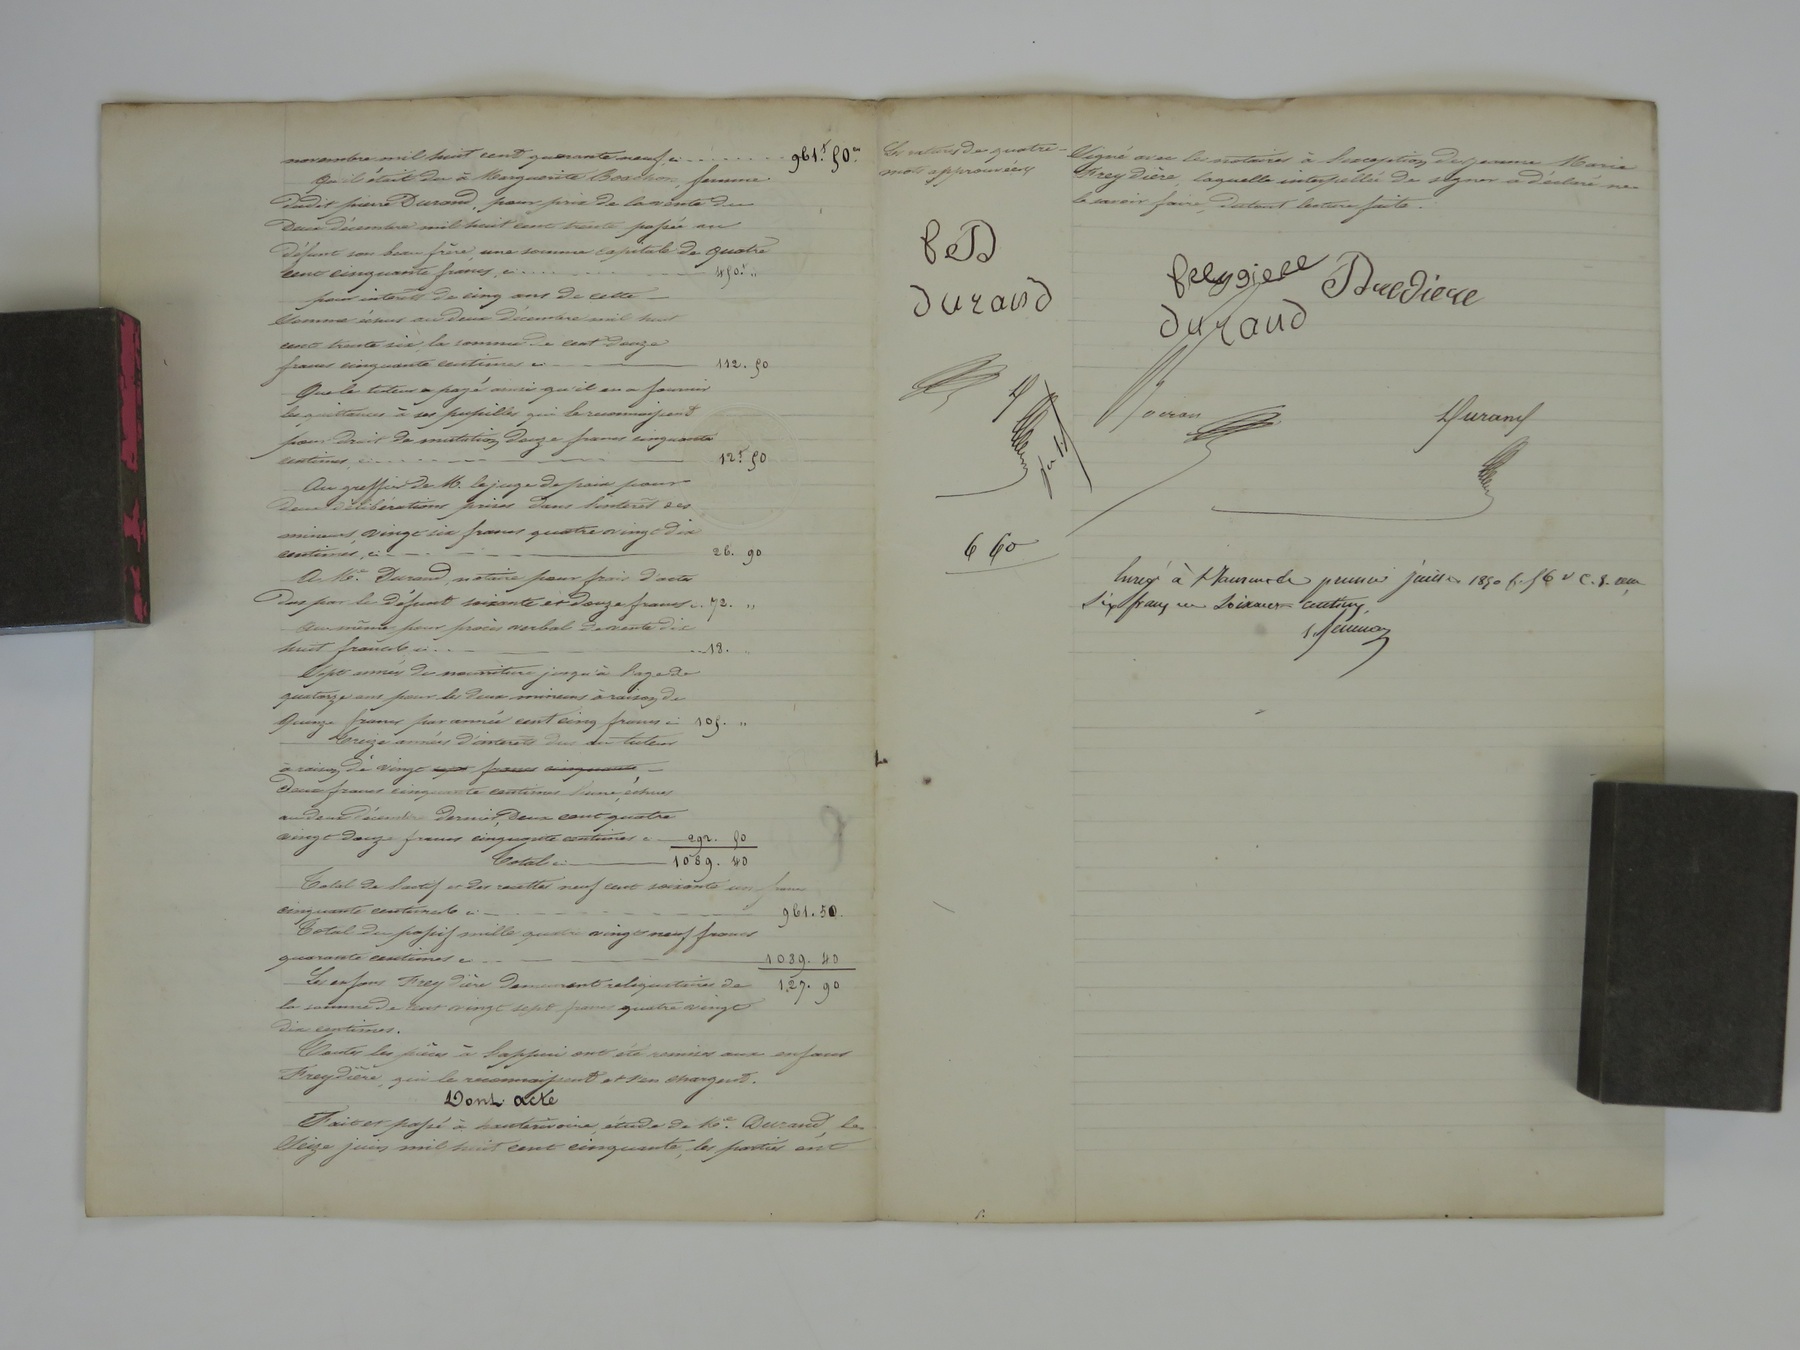 novembre mil huit cent quarante neuf, ci 961.f 50.c
Qu'il était du à Marguerite Boachon, femme
dudit pierre Durand, pour prix de la vente du
Deux décembre mil huit cent trente, passée au
défunt son beau frère, une somme capitale de quatre
cent cinquante francs, ci 450.f "
pour intérêts de cinq ans de cette
Somme échus au deux Décembre mil huit
cent trente six, la somme de cent douze
francs cinquante centimes ci 112. 50
Que le tuteur a payé ainsi qu'il en a fourni
les quittances à ses pupilles qui le reconnaissent
pour droit de mutation, douze francs cinquante
centimes, ci 12.f 50
Au greffier de M. le juge de paix pour
deux délibérations prises dans l'intérêt des
mineurs, vingt six francs quatre vingt dix
centimes, ci 26. 90
A Me. Durand, notaire pour frais d'actes
dus par le défunt soixante et douze francs ci 72. "
Au même pour procès verbal de vente dix
huit francs ci 18. "
Sept années de nourriture jusqu'à l'age de
quatorze ans pour les deux mineurs à raison de
Quinze francs par année cent cinq francs ci 105. "
Treize années d'intérêts dus au tuteur
à raison de vingt sept francs cinquante
Deux francs cinquante centimes l'une, échues
au deux Décembre dernier, Deux cent quatre
vingt douze francs cinquante centimes ci 292. 50
Total ci 1089. 40
Total de l'actif et des recettes neuf cent soixante un francs
cinquante centimes ci 961. 50.
Total du passif mille quatre vingt neuf francs
quarante centimes ci 1089. 40
Les enfans Freydière demeurent reliquataires de 127. 90
la somme de cent vingt sept francs quatre vingt
dix centimes.
Toutes les pièces à l'appui ont été remises aux enfans
Freydière, qui le reconnaissent et s'en chargent.
Dont acte
Fait et passé à hauterivoire, étude de Me. Durand, le
Seize juin mil huit cent cinquante, les parties ont
Les ratures de quatre
mots approuvées
f D
Durand
6 60
Signé avec les notaires à l'exception de Jeanne Marie
Freydière, laquelle interpellée de signer a déclaré ne
le savoir faire, du tout lecture faite.
freydiere Bredière
durand
Durand
Enregé à St premier juillet 1850 f. 56 v. C. 8.
six francs soixante centimes.